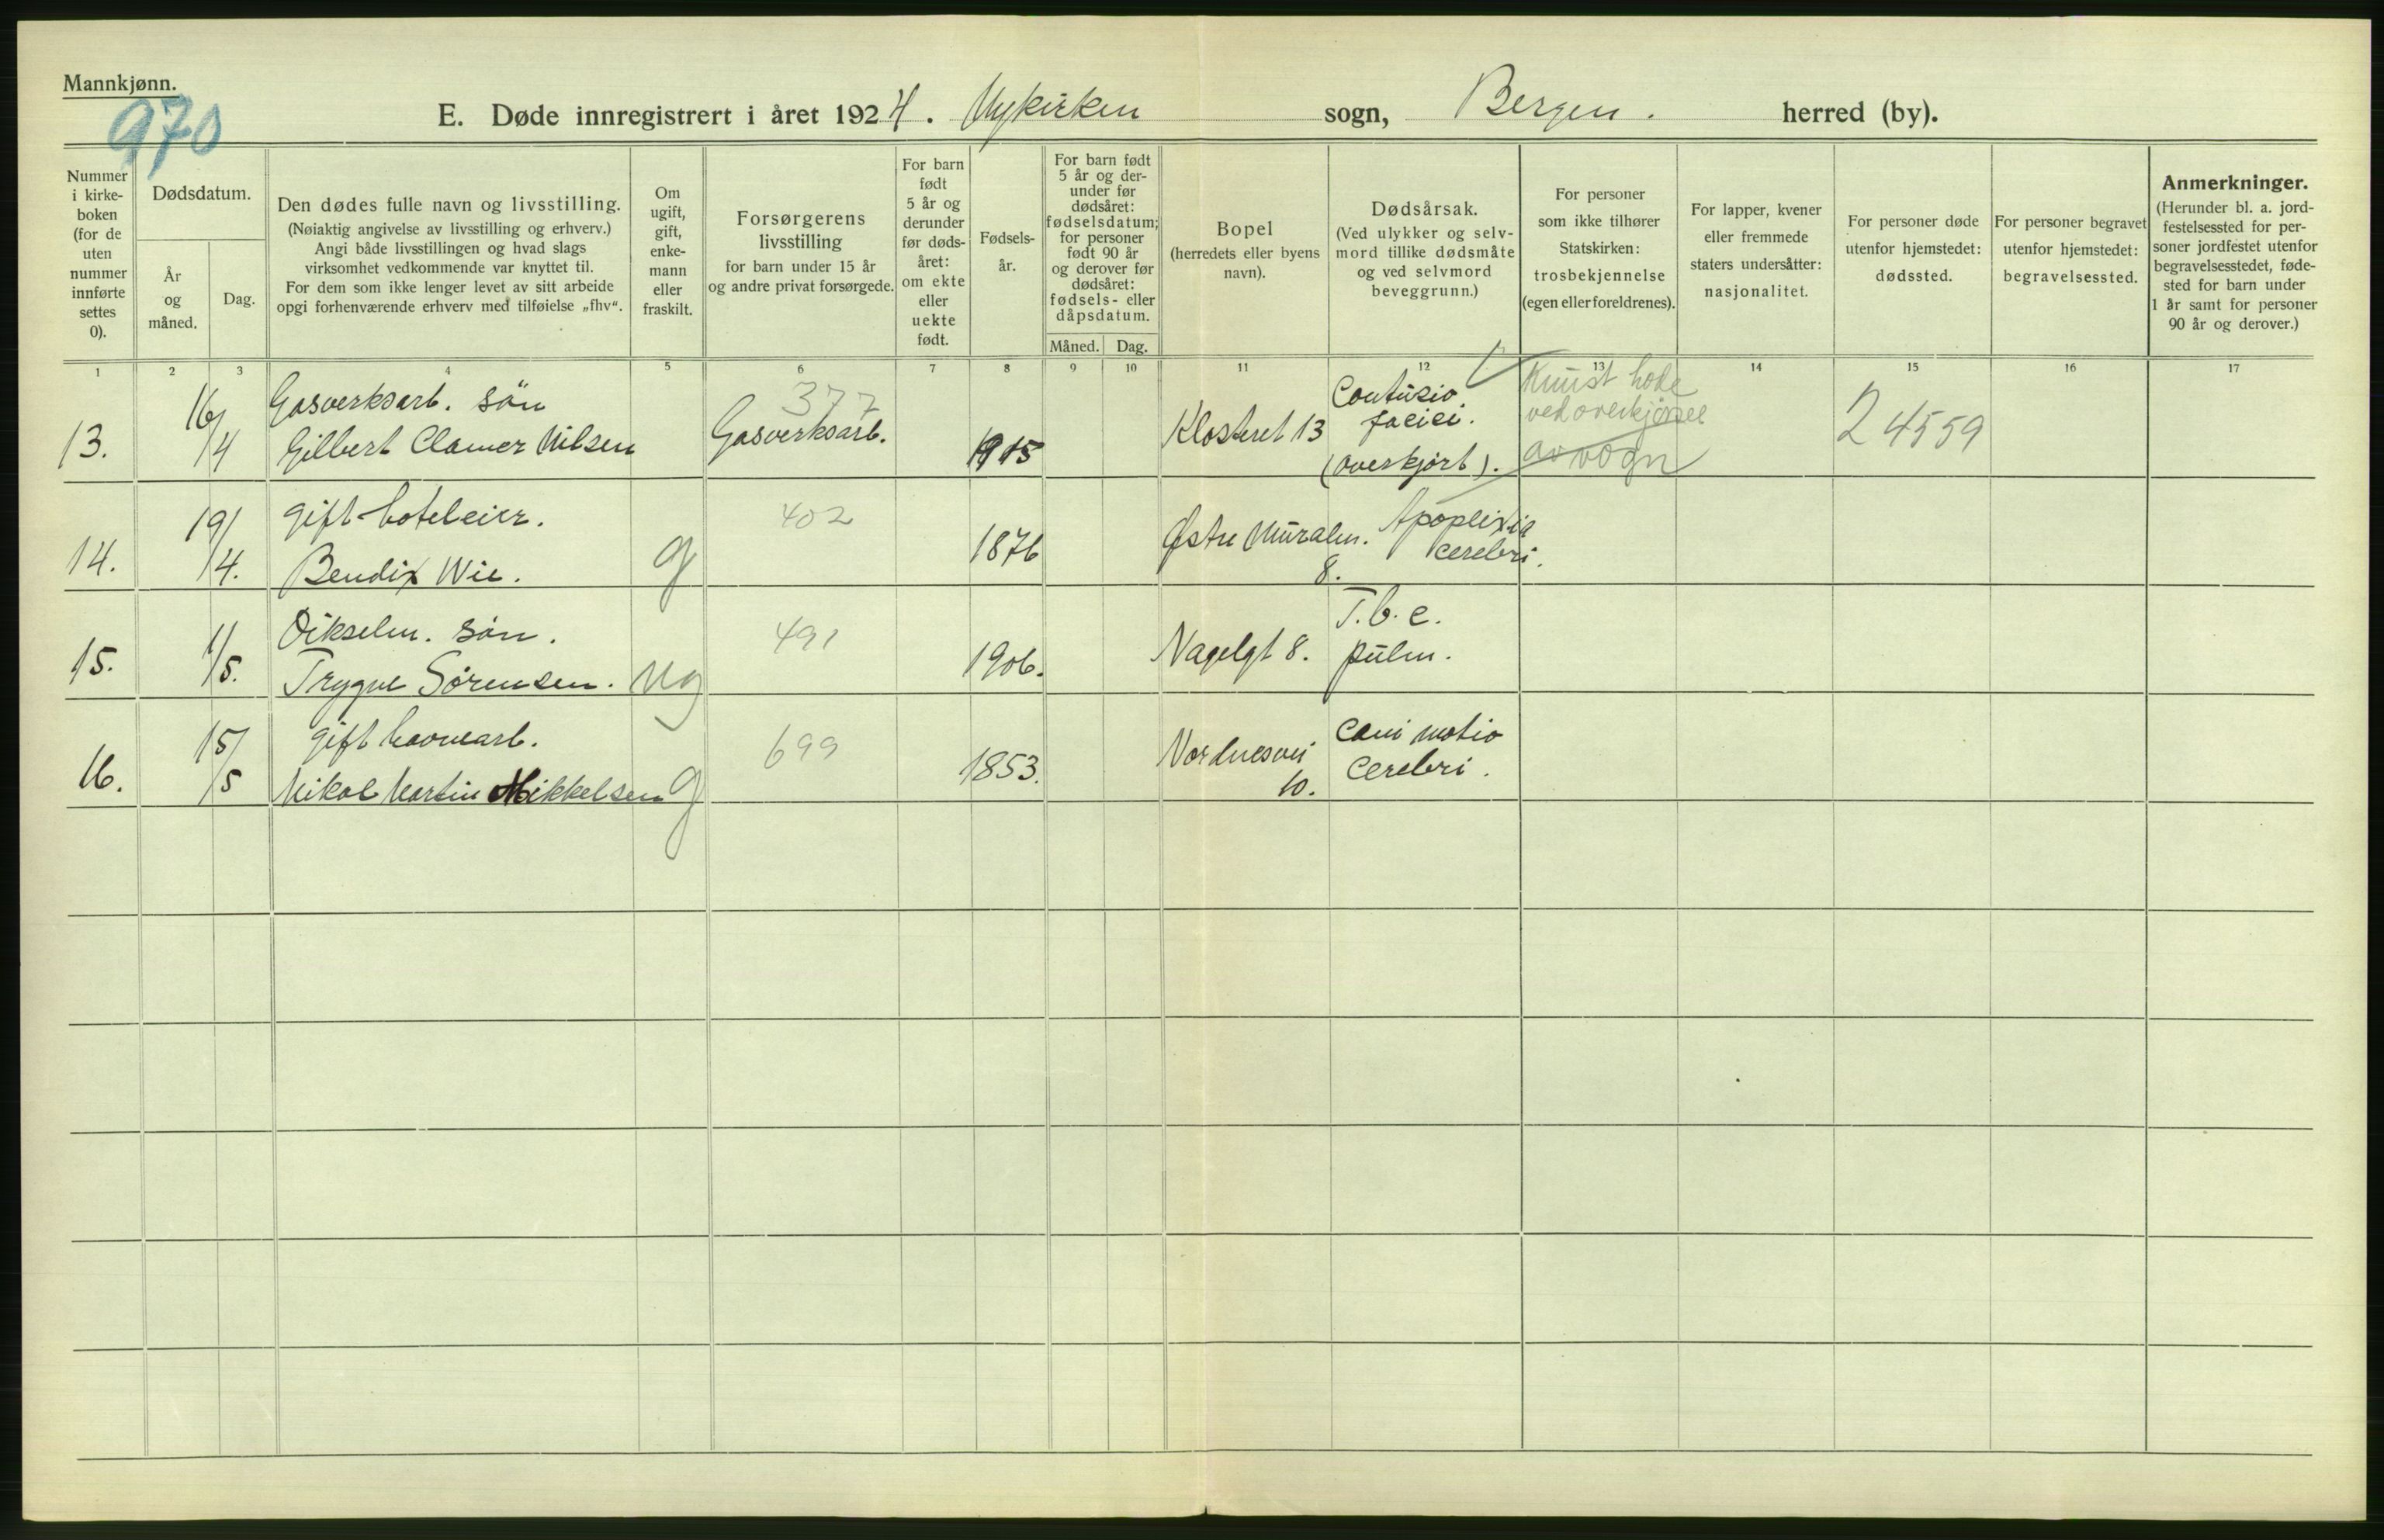 Mannkjønn.
970
E. Døde innregistrert i året 1924. Nykirken sogn, Bergen. herred (by).
Nummer
i kirke-
boken
(for de
uten
nummer
innførte
settes
0).
Dødsdatum.
År
og
måned.
Dag.
Den dødes fulle navn og livsstilling.
(Nøiaktig angivelse av livsstilling og erhverv.)
Angi både livsstillingen og hvad slags
virksomhet vedkommende var knyttet til.
For dem som ikke lenger levet av sitt arbeide
opgi forhenværende erhverv med tilføielse „fhv“.
Om
ugift,
gift,
enke-
mann
eller
fraskilt.
Forsørgerens
livsstilling
for barn under 15 år
og andre privat forsørgede.
For barn
født
5 år og
derunder
før døds-
året:
om ekte
eller
uekte
født.
Fødsels-
år.
For barn født
5 år og der-
under før
dødsåret:
fødselsdatum;
for personer
født 90 år
og derover før
dødsåret:
fødsels- eller
dåpsdatum.
Måned. Dag.
Bopel
(herredets eller byens
navn).
Dødsårsak.
(Ved ulykker og selv-
mord tillike dødsmåte
og ved selvmord
beveggrunn.)
For personer
som ikke tilhører
Statskirken:
trosbekjennelse
(egen eller foreldrenes).
For lapper, kvener
eller fremmede
staters undersåtter:
nasjonalitet.
For personer døde
utenfor hjemstedet:
dødssted.
For personer begravet
utenfor hjemstedet:
begravelsessted.
Anmerkninger.
(Herunder bl. a. jord-
festelsessted for per-
soner jordfestet utenfor
begravelsesstedet, føde-
sted for barn under
1 år samt for personer
90 år og derover.)
1 2 3 4 5 6 7 8 9 10 11 12 13 14 15 16 17
13. 16/4
Gasverksarb. søn
Gilbert Clamer Nilsen
377
Gasverksarb.
1915
Klosteret 13
Contusio
faciei.
(overkjørt).
Knust hode
ved overkjørsel
av vogn
24559
14. 19/4.
gift hoteleier.
Bendix Wie.
g
402
1876
Østre Muralm.
8.
Apoplexia
cerebri.
15. 1/5.
søn.
Trygve Sørensen.
ug
491
1906.
Nagelgt 8.
T.b.c.
pulm.
16. 15/5
gift havnearb.
Nikol Martin Mikkelsen
g
699
1853.
Nordnesvei
10.
motio
Cerebri.